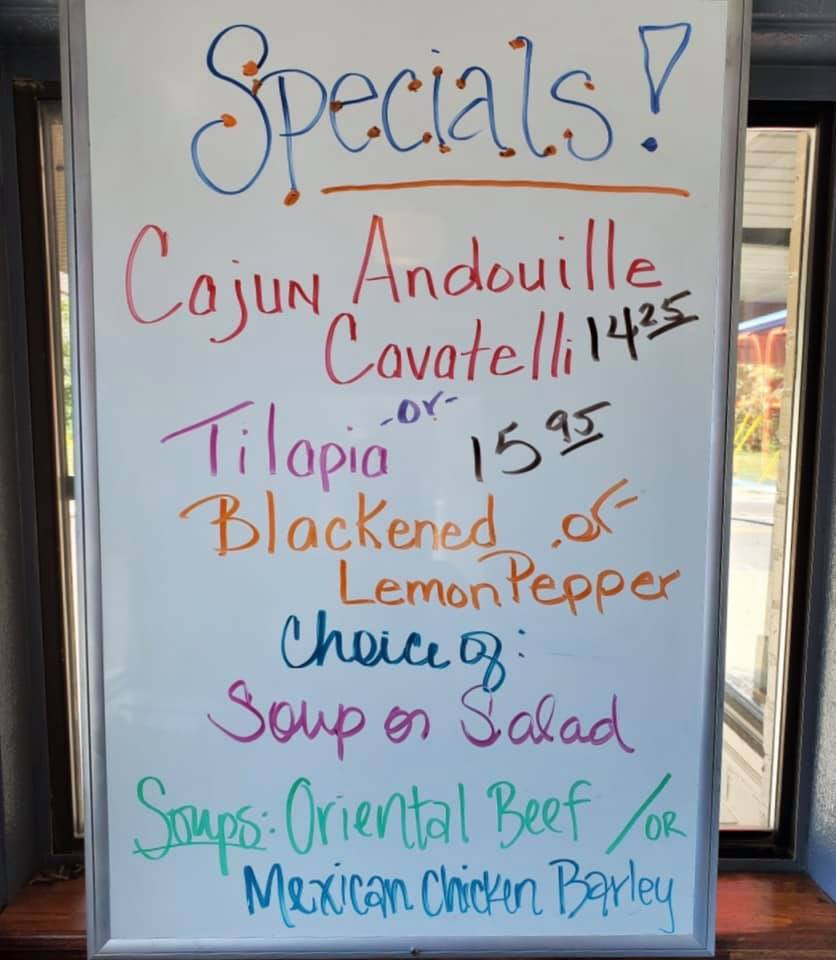 Specials!
Cajun Andouille
Cavatelli 14 25
-or-
Tilapia 15 95
Blackened -or-
Lemon Pepper
Choice of:
Soup or Salad
Soups: Oriental Beef / OR
Mexican Chicken Barley